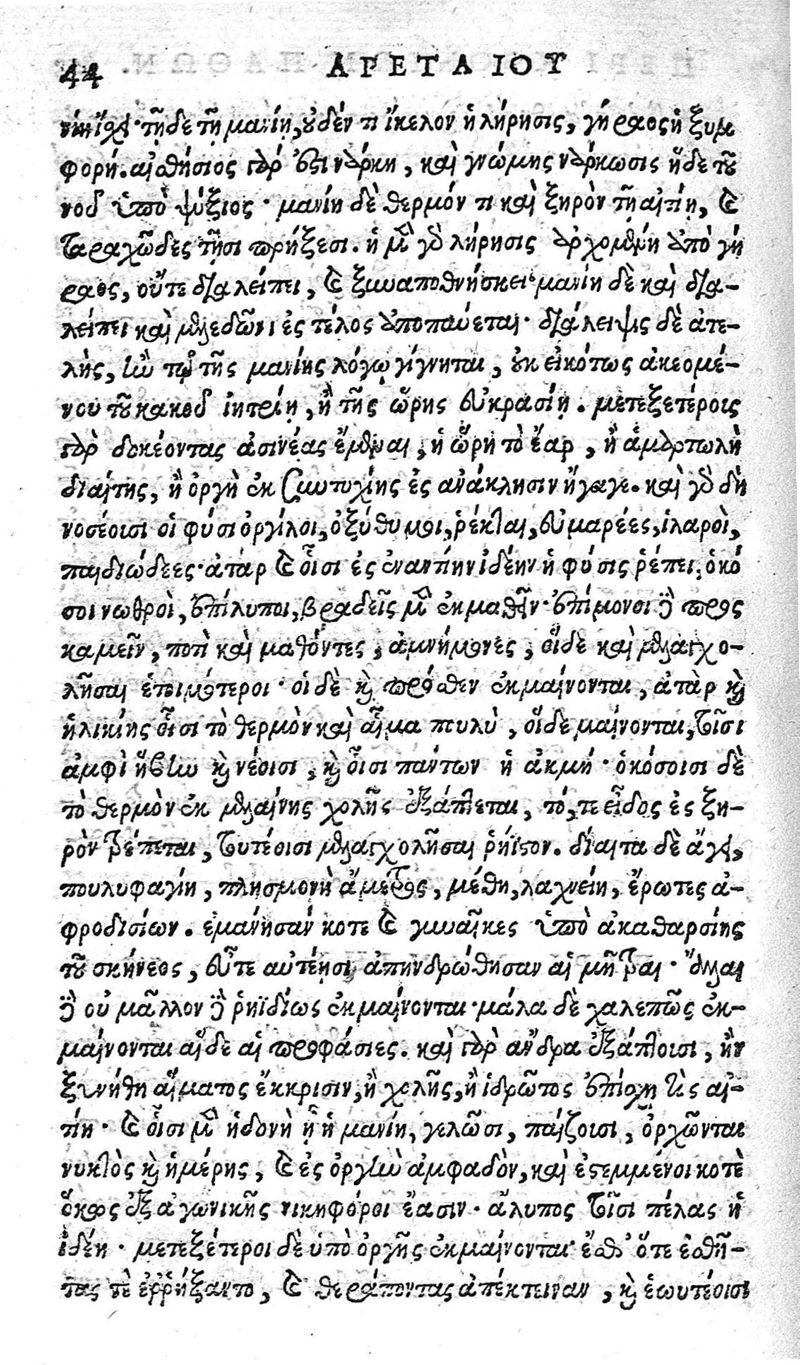 44 ΑΡΕΤΑΙΟΥ
τῇδε τῇ μανίῃ, οὐδέν τι ἴκελον ἡ λήρησις, γήραος ἡ ξυμ
φορή. αἰσθήσιος γὰρ ἐστὶ νάρκη, καὶ γνώμης νάρκωσις ἥδε τοῦ
νοῦ ὑπὸ ψύξιος· μανίη δὲ θερμόν τι καὶ ξηρὸν τῇ αἰτίῃ, καὶ
ταραχῶδες τῇσι πρήξεσι. ἡ μὲν γὰρ λήρησις ἀρχομένη ἀπὸ γή
ραος, οὔτε διαλείπει, καὶ ξυναποθνήσκει· μανίη δὲ καὶ δια-
λείπει καὶ μελεδῶνι ἐς τέλος ἀποπαύεται· διάλειψις δὲ ἀτε-
λὴς, ἢν τῷ τῆς μανίης λόγῳ γίγνηται, οὐκ εἰκότως ἀκεομέ-
νου τοῦ κακοῦ ἰητρίῃ, ἢ τῆς ὥρης εὐκρασίῃ. μετεξετέροις
γὰρ δοκέοντας ἀσινέας ἔμεναι, ἡ ὥρη τὸ ἔαρ, ἢ ἁμαρτωλὴ
διαίτης, ἢ ὀργὴ ἐκ ξυντυχίης ἐς ἀνάκλησιν ἤγαγε. καὶ γὰρ δὴ
νοσέοισι οἱ φύσι ὀργίλοι, ὀξύθυμοι, ῥέκται, εὐμαρέες, ἱλαροὶ,
παιδιώδεες· ἀτὰρ καὶ οἷσι ἐς ἐναντίην ἰδέην ἡ φύσις ῥέπει, ὁκό
σοι νωθροὶ, ἐπίλυποι, βραδεῖς μὲν ἐκμαθεῖν· ἐπίμονοι δὲ πρὸς
καμεῖν, ποτὶ καὶ μαθόντες, ἀμνήμονες, οἵδε καὶ μελαγχο-
λῆσαι ἑτοιμότεροι· οἱ δὲ καὶ πρόσθεν ἐκμαίνονται, ἀτὰρ καὶ
ἡλικίης οἷσι τὸ θερμὸν καὶ αἷμα πουλὺ, οἵδε μαίνονται, τοῖσι
ἀμφὶ ἥβην καὶ νέοισι, καὶ οἷσι πάντων ἡ ἀκμή· ὁκόσοισι δὲ
τὸ θερμὸν ἐκ μελαίνης χολῆς ἐξάπτεται, τό, τε εἶδος ἐς ξη-
ρὸν τρέπεται, τουτέοισι μελαγχολῆσαι ῥήϊστον. δίαιτα δὲ ἄγει,
πουλυφαγίη, πλησμονὴ ἄμετρος, μέθη, λαγνείη, ἔρωτες ἀ-
φροδισίων. ἐμάνησάν κοτε καὶ γυναῖκες ὑπὸ ἀκαθαρσίης
τοῦ σκήνεος, εὖτε αὐτέῃσι ἀπηνδρώθησαν αἱ μῆτραι· ἄλλαι
δὲ οὐ μᾶλλον δὲ ῥηϊδίως ἐκμαίνονται· μάλα δὲ χαλεπῶς ἐκ-
μαίνονται αἵδε αἱ προφάσιες. καὶ γὰρ ἄνδρα ἐξάπτοισι, ἢν
ξυνήθη αἵματος ἔκκρισιν, ἢ χολῆς, ἢ ἱδρῶτος ἐπίσχῃ τὶς αἰ-
τίη· καὶ οἷσι μὲν ἡδονὴ ᾖ ἡ μανίη, γελῶσι, παίζοισι, ὀρχῶνται
νυκτὸς καὶ ἡμέρης, καὶ ἐς ὀργὴν ἀμφαδὸν, καὶ ἐστεμμένοι κοτὲ
ὅκως ἐξ ἀγωνικῆς νικηφόροι ἔασιν· ἄλυπος τοῖσι πέλας ἡ
ἰδέη· μετεξέτεροι δὲ ὑπὸ ὀργῆς ἐκμαίνονται· ἔσθ' ὅτε ἐσθῆ-
τας τὲ ἐρρήξαντο, καὶ θεράποντας ἀπέκτειναν, καὶ ἑωυτέοισι